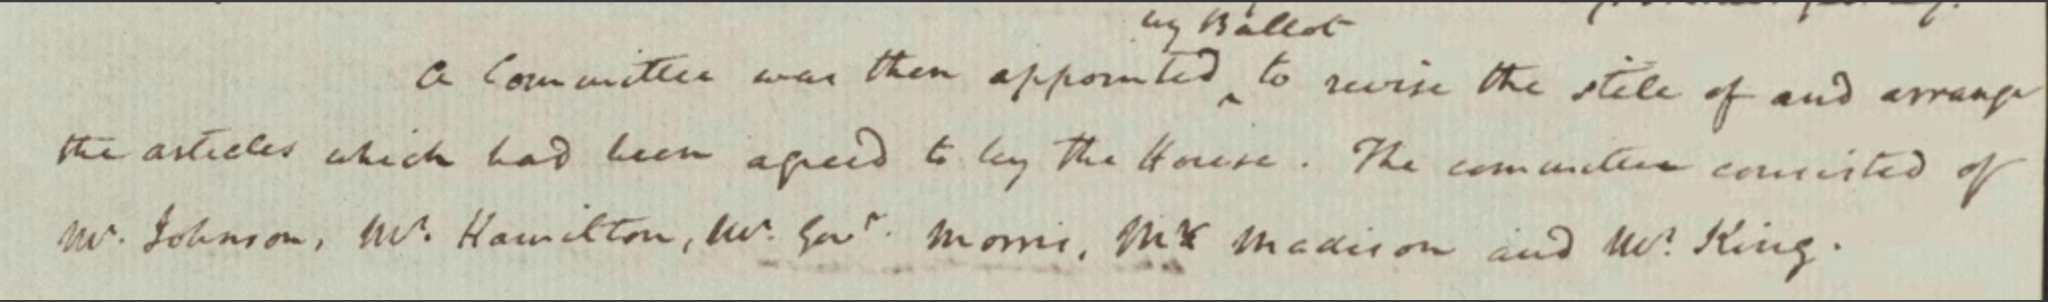 by Ballot
A Committee was then appointed ‸ to revise the stile of and arrange
the articles which had been agreed to by the House. The committee consisted of
Mr. Johnson, Mr. Hamilton, Mr. Govr. Morris, Mr. Madison and Mr. King.